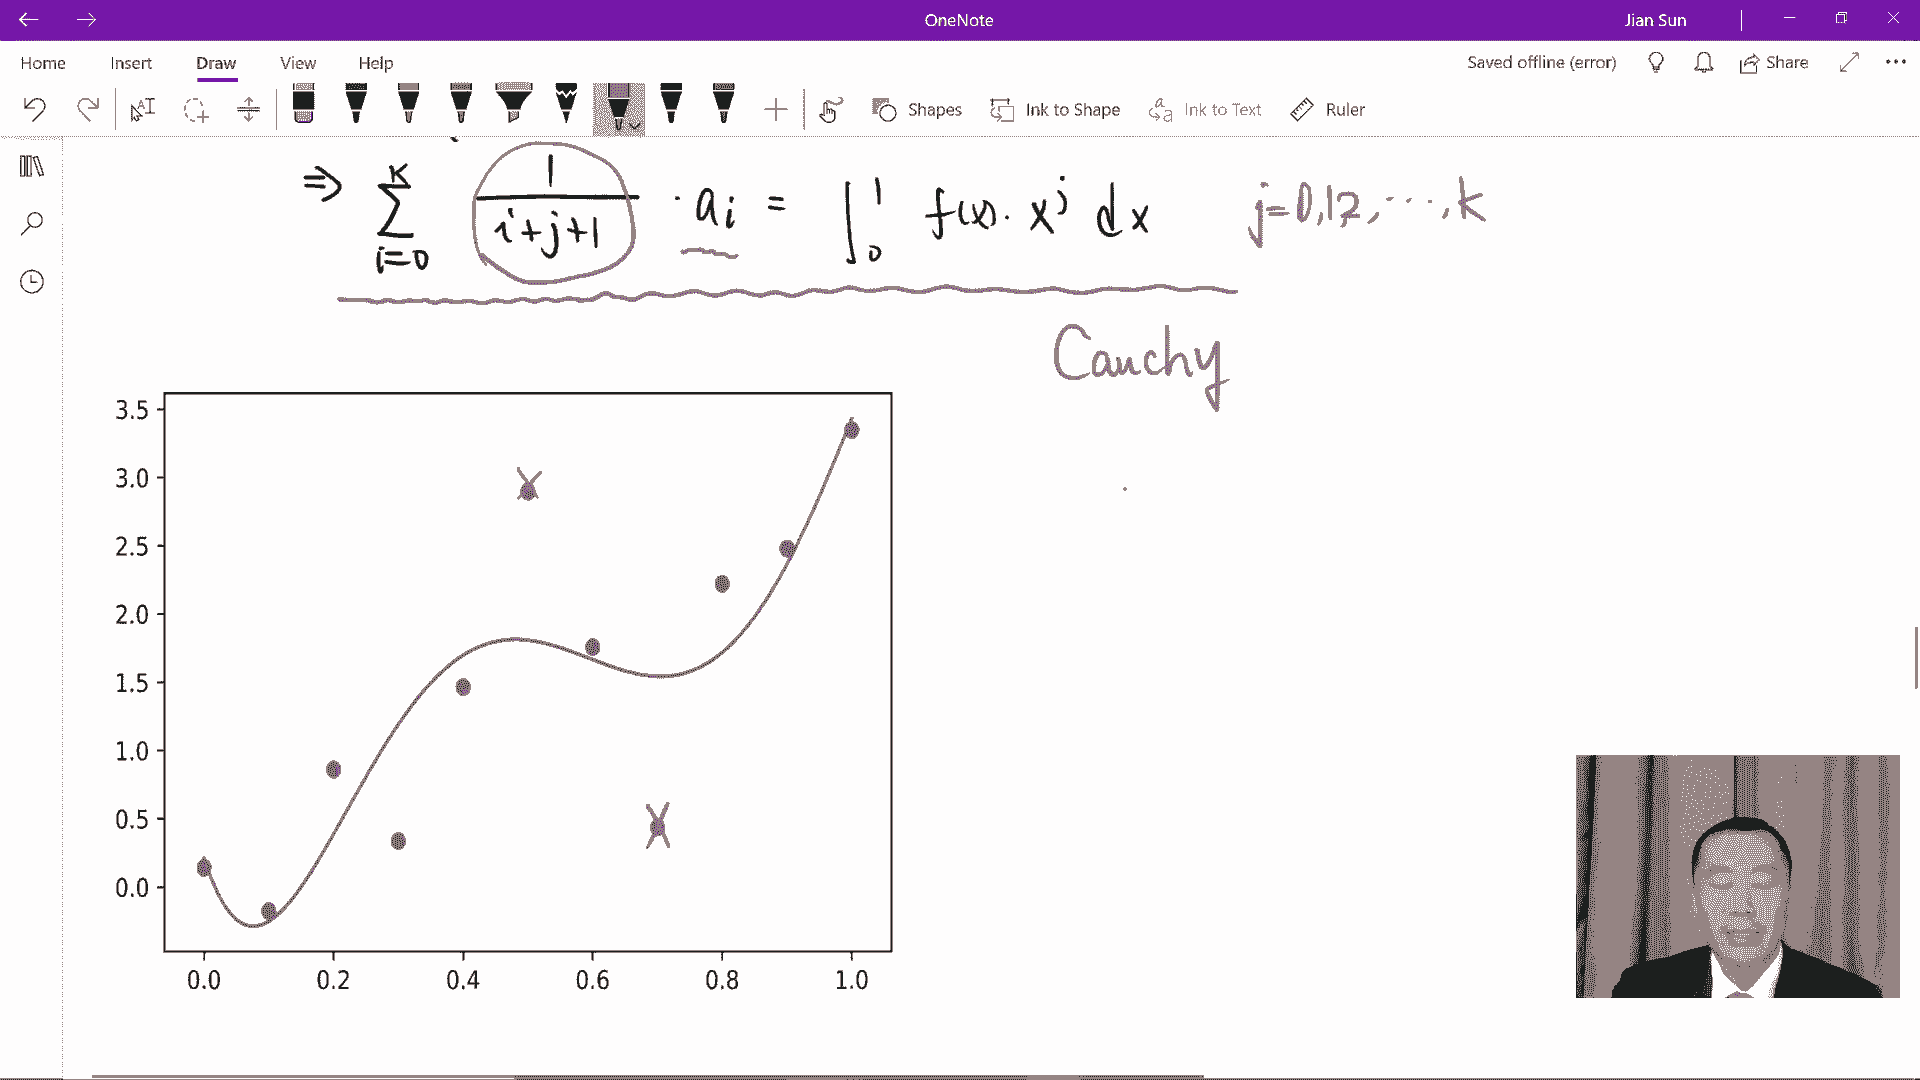 OneNote
Jian Sun
Home Insert Draw View Help
Saved offline (error) Share
Shapes Ink to Shape Ink to Text Ruler
⇒ K 1
∑ ─── · ai = ∫₀¹ f(x) · x^j dx j=0,1,2,…,k
i=0 i+j+1
Cauchy
3.5
3.0
2.5
2.0
1.5
1.0
0.5
0.0
0.0 0.2 0.4 0.6 0.8 1.0